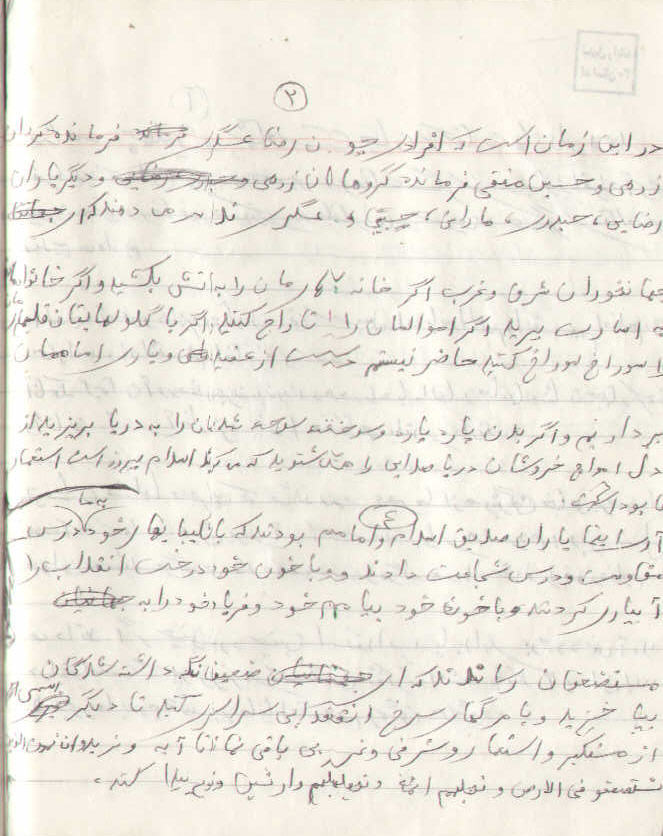 ۲
در این زمان است که افرادی چون رضا عسگری فرمانده گردان
زرهی و حسین متقی فرمانده گروهان زرهی و دیگر یاران
رضایی، حیدری، مارانی، و عسگری ندا می دهند که ای
جهانخواران شرق و غرب اگر خانه کارمان را به آتش بکشید و اگر خانواده
به اسارت ببرید اگر اموالمان را تاراج کنید اگر با گلوله هایتان قلبهای
را سوراخ سوراخ کنید حاضر نیستیم دست از عقیده و یاری اماممان
برداریم و اگر بدن پاره پاره و سوخته شده مان را به دریا بریزید از
دل امواج خروشان دریا صدایی را می شنوید که می گوید اسلام پیروز است استعمار
نابود است
آری اینها یاران صدیق اسلام و امام بودند که با خود به ما درس
مقاومت و درس شجاعت دادند و با خون خود درخت انقلاب را
آبیاری کردند و با خون خود پیام خود و فریاد خود را به
مستضعفان رساندند که ای ضعیف نگه داشته شدگان
بپا خیزید و با هم گام سرخ انقلابی کنید تا دیگر اسمی
از مستکبر و استعمار شرقی و غربی باقی نماند آیه و نرید ان نمن
استضعفو فی الارض و نجعلهم ائمة و نجعلهم وارثین پیدا کند.